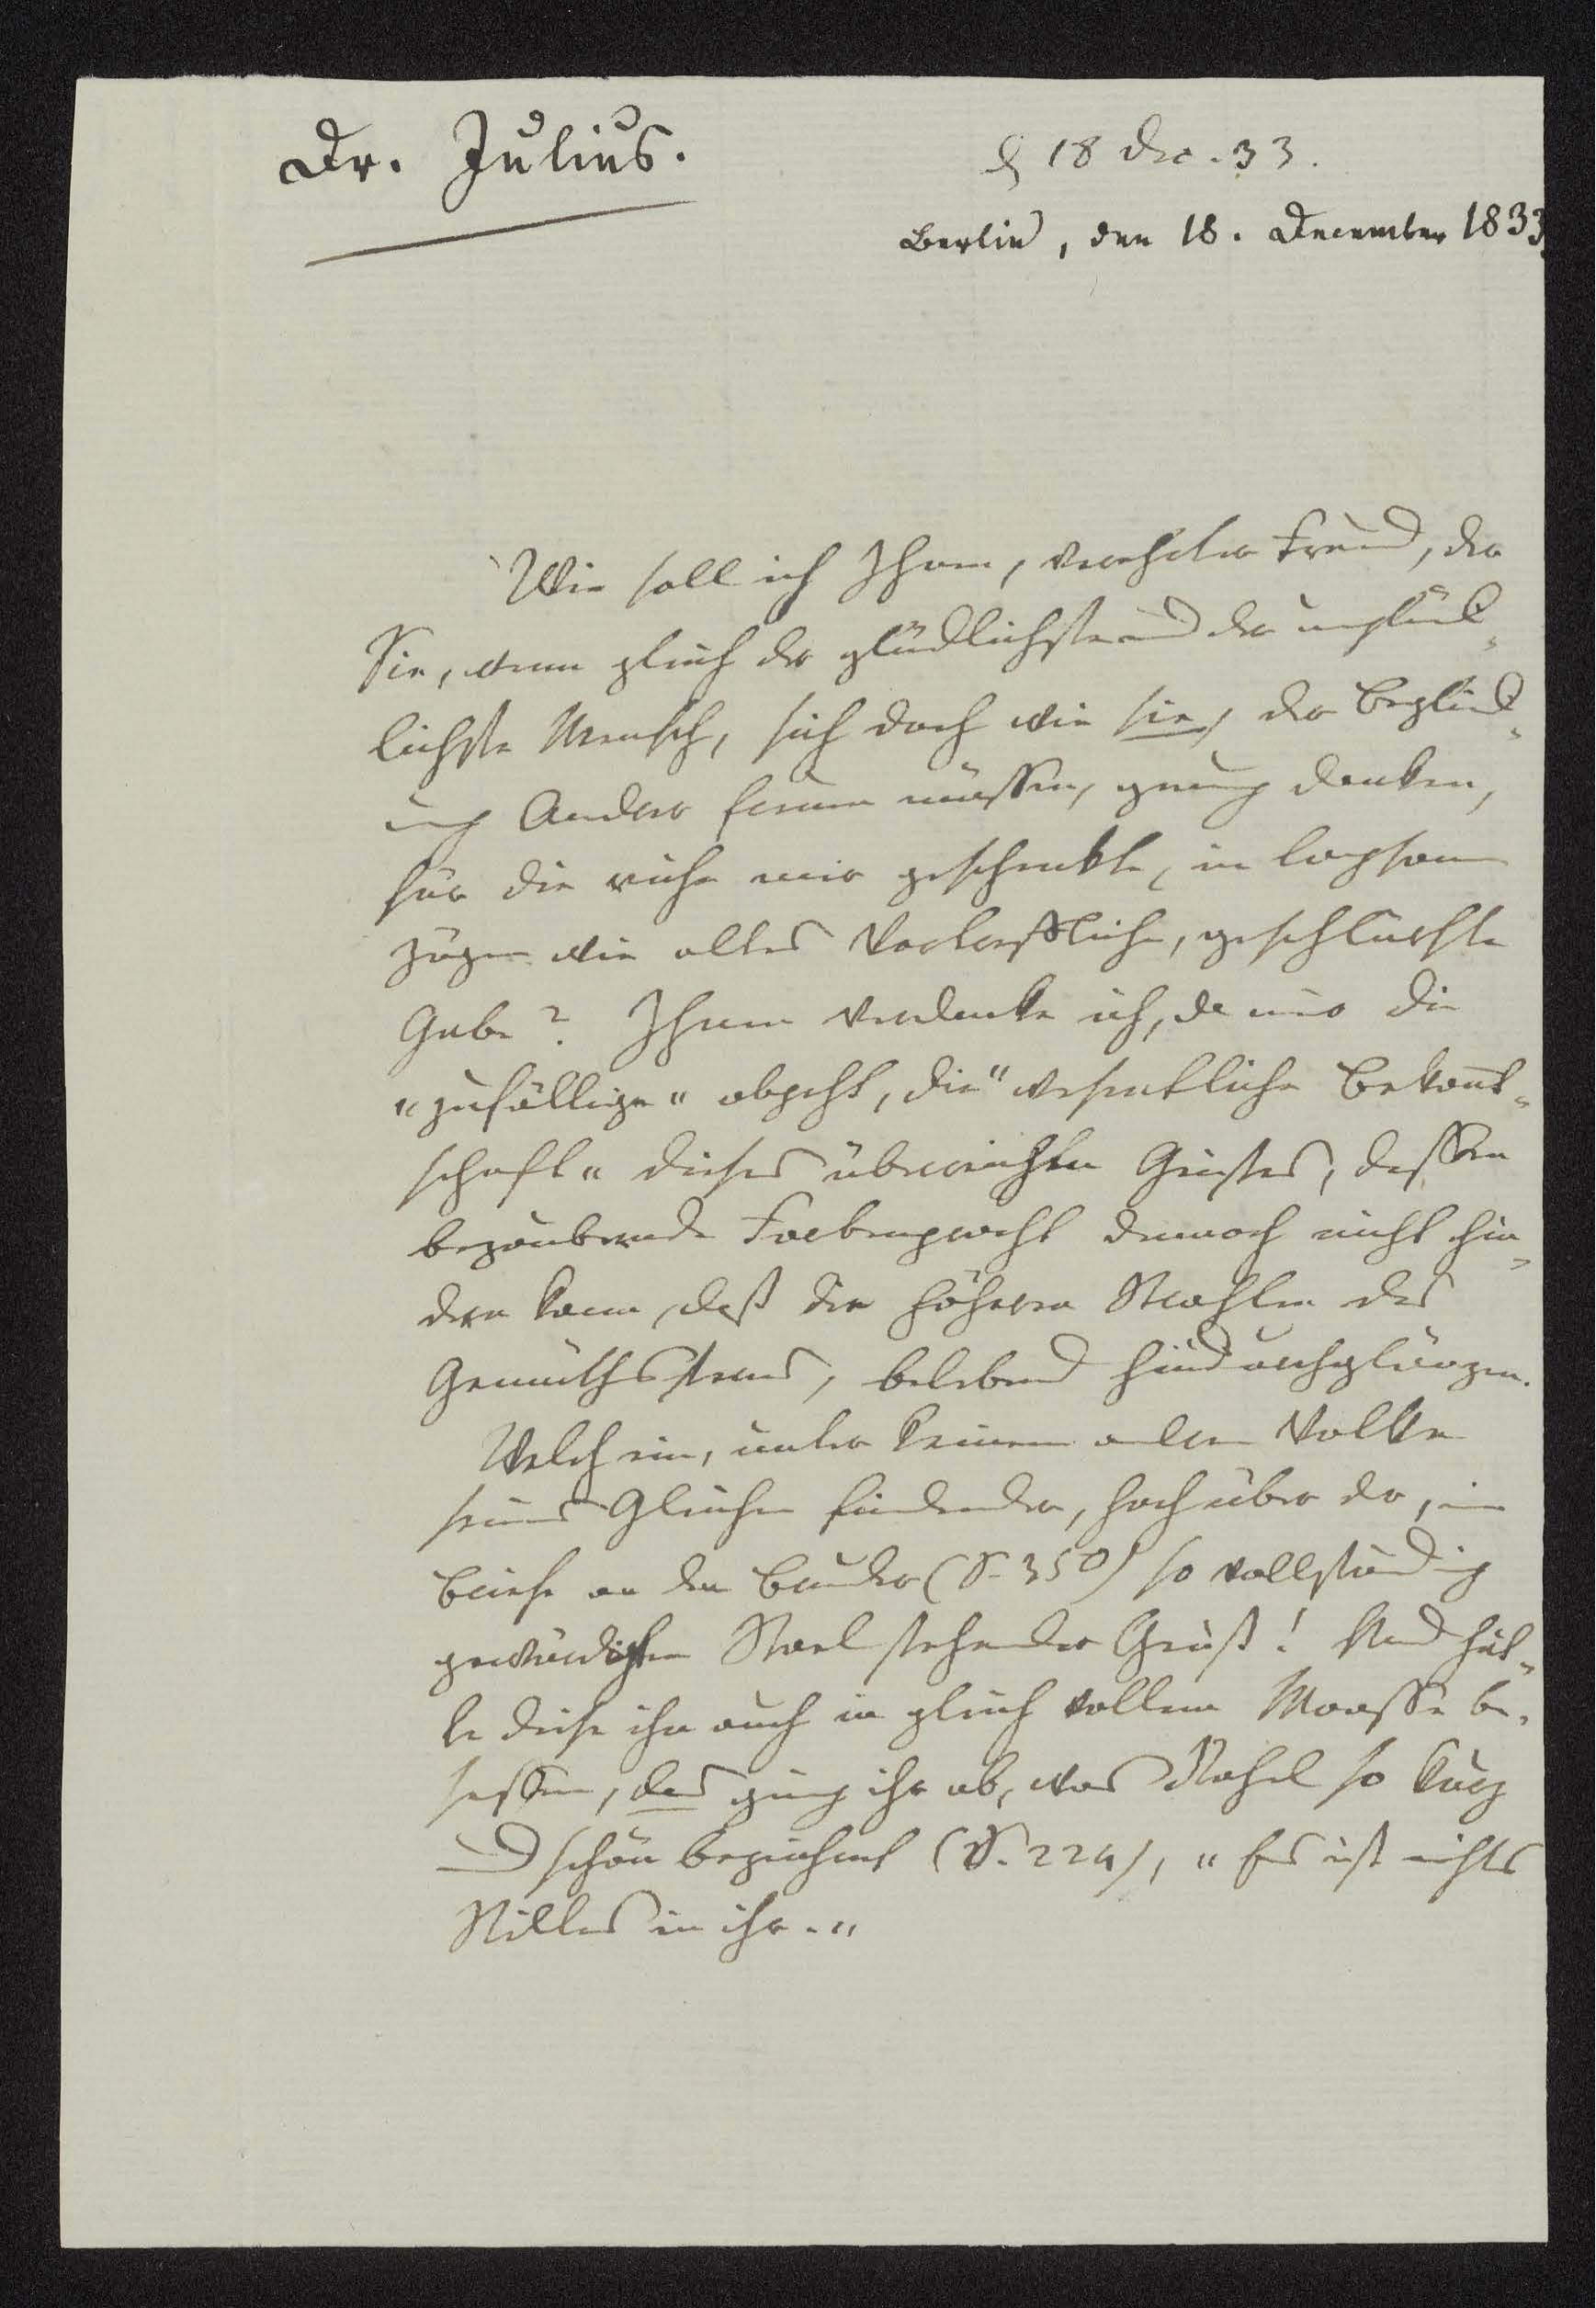 Dr. Julius.
d 18 Dec. 33.
Berlin, den 18. December 1833.
Wie soll ich Ihnen, verehrter Freund, der
Sie, wenn gleich der glücklichste und der unglück-
lichste Mensch, sich doch wie sie, der Beglück-
ung Anderer freuen müssen, genug danken,
für die reiche mir geschenkte, in langsamen
Zügen wie alles Vortreffliche, geschlürfte
Gabe? Ihnen verdanke ich, da mir die
"zufällige" abgeht, die "wesentliche Bekannt-
schaft" dieses überreichen Geistes, dessen
bezaubernde Farbenpracht dennoch nicht hin-
dern kann, daß die höheren Strahlen des
Gemüthssterns, belebend hindurchglänzen.
Welch ein, unter keinem andern Volke
seines Gleichen findender, hoch über der, im
Briefe an den Bruder (S. 350) so vollständig
gewürdigten Stael stehender Geist! Und hät-
te diese ihn auch in gleich vollem Maasse be-
sessen, das ging ihr ab, was Rahel so kurz
und schön bezeichnet (S. 224), "Es ist nichts
Stilles in ihr."